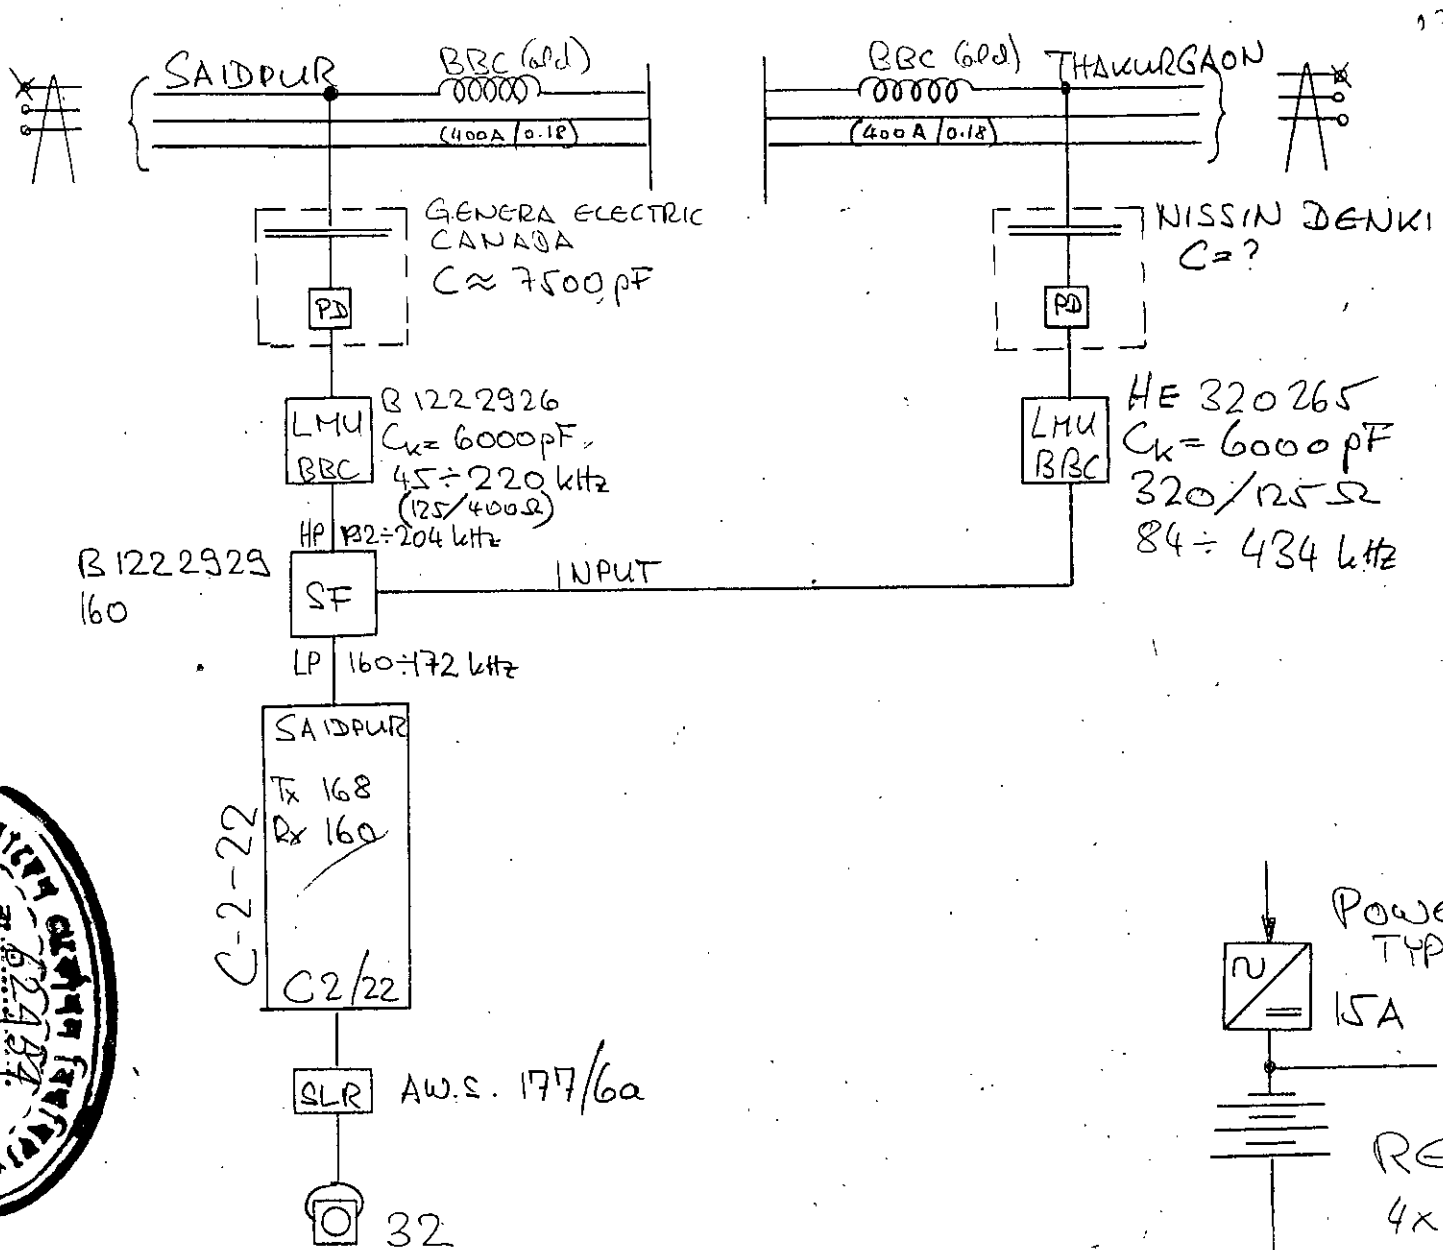 SAIDPUR
BBC (old)
(400A/0.18)
BBC (old)
THAKURGAON
(400A/0.18)
GENERA ELECTRIC
CANADA
C ≈ 7500 pF
PD
NISSIN DENKI
C = ?
PD
LMU
BBC
B 1222926
Ck = 6000 pF
45 ÷ 220 kHz
(125/400Ω)
HP
÷204 kHz
LMU
BBC
HE 320265
Ck = 6000 pF
320/125 Ω
84 ÷ 434 kHz
B 1222929
160
SF
INPUT
LP 160÷172 kHz
SAIDPUR
Tx 168
Rx 160
C-2-22
C2/22
SLR
A.W.S. 177/6a
32
POWE
TYP
15A
RE
4x